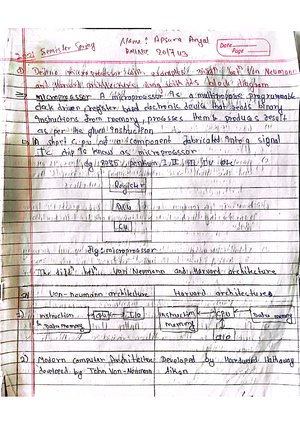 Name: Apsara Aryal
Roll No. 201743
Date
Page
2021 Semister Spring
① Define microprocessor with example? diffn betn Von Neumann
and Harvard architectures along with its block diagram
microprocessor A microprocessor is a multipurpose, programmable
clock driven, register based electronic device that reads binary
instructions from memory, processes them & produces result
as per the given instruction
A short C.P.U of a component fabricated into a signal
IC chip is known as microprocessor
eg 8085, pentium I, II
Register
ALU
CU
Fig: microprocessor
The diffn betn Von Neumann and Harvard architecture
Von-neumann architecture
Harvard architectures
1)
instruction
& Data memory
CPU
I/O
instruction
memory
CPU
Data memory
I/O
2)
Modern Computer Architecture
developed by John Von-Neumann
Developed by Harward Hathaway
Aiken